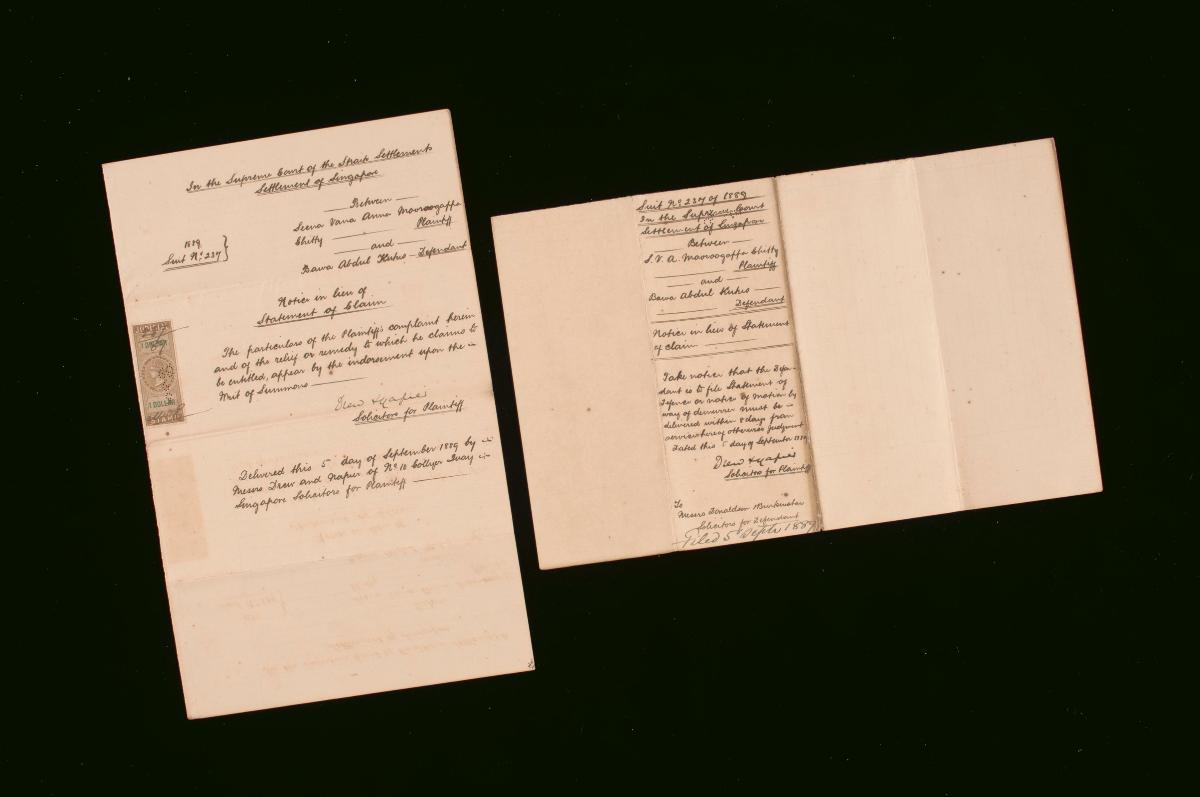 In the Supreme Court of the Straits Settlements
Settlement of Singapore
Between
Seena Vana Anna Mooroogappa
Chitty Plaintiff
1889
Suit No. 237
and
Bawa Abdul Kuhus Defendant
Notice in lieu of
Statement of Claim
The particulars of the Plaintiff's complaint herein
and of the relief or remedy to which he claims to
be entitled, appear by the indorsement upon the
Writ of Summons
Drew & Napier
Solicitors for Plaintiff
1 DOLLAR
Delivered this 5 day of September 1889 by
Messrs Drew and Napier of No. 10 Collyer Quay
Singapore Solicitors for Plaintiff
Suit No. 237 of 1889
In the Supreme Court
Settlement of Singapore
Between
S. V. A. Mooroogappa Chitty
Plaintiff
and
Bawa Abdul Kuhus
Defendant
Notice in lieu of Statement
of claim
Take notice that the Defen-
dant is to file Statement of
Defence or notice of Motion by
way of demurrer must be
delivered within 8 days from
service hereof otherwise judgment
Dated this 5 day of September 1889
Drew & Napier
Solicitors for Plaintiff
To
Messrs Donaldson & Burkinshaw
Solicitors for Defendant
Filed 5 Septr 1889